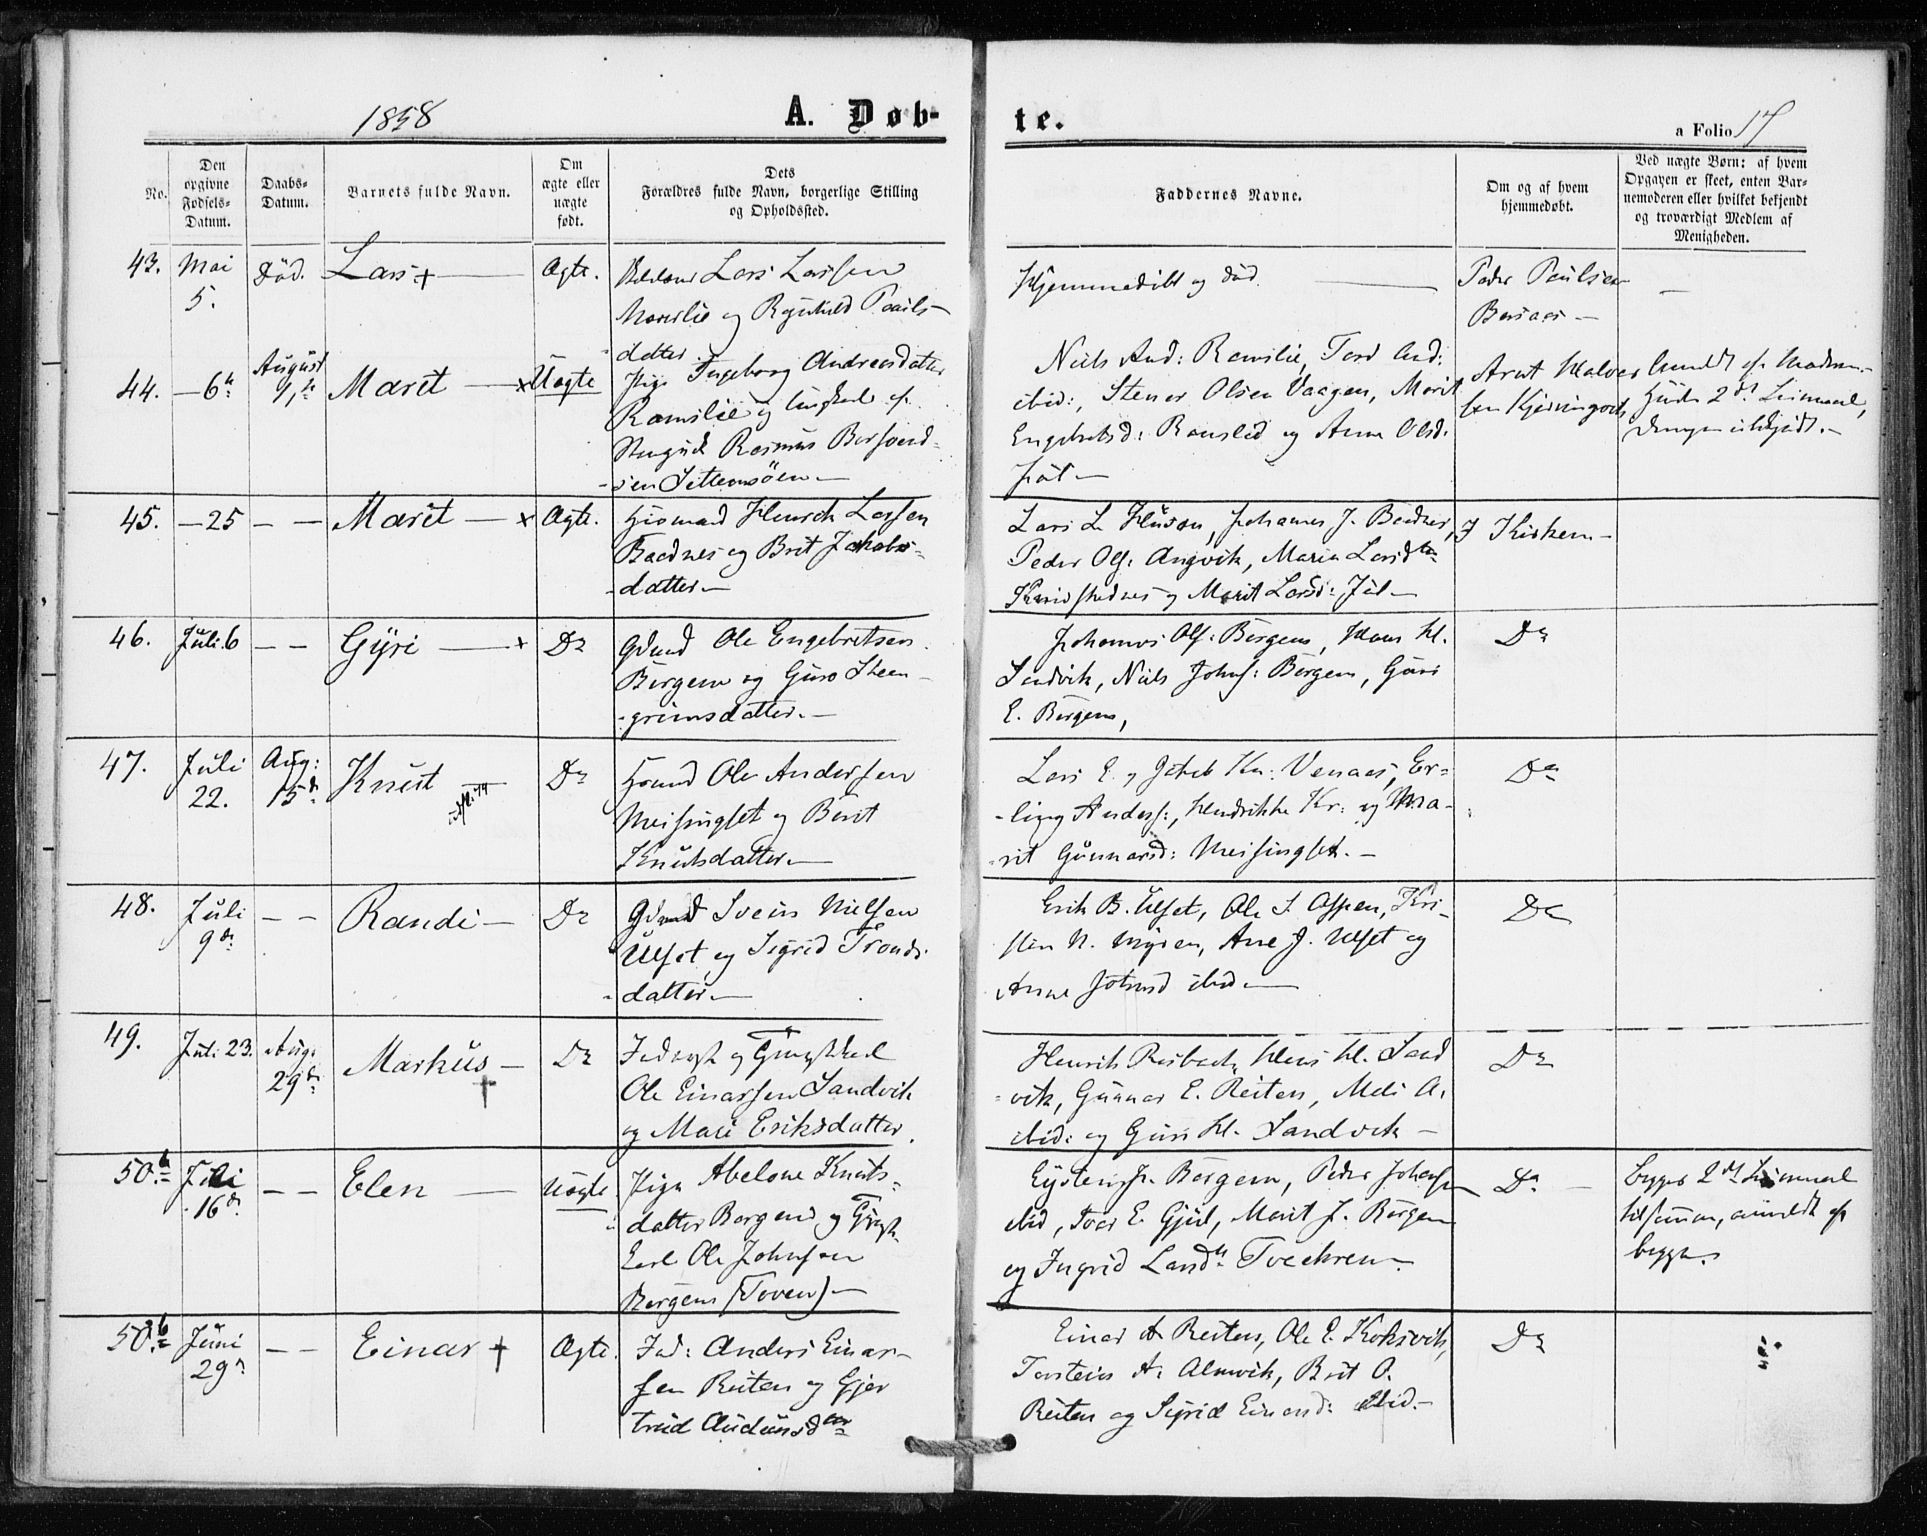 1858
A. Døb-
te.
a Folio 17
No.
Den opgivne Fødsels-Datum.
Daabs-Datum.
Barnets fulde Navn.
Om ægte eller uægte født.
Dets Forældres fulde Navn, borgerlige Stilling og Opholdssted.
Faddernes Navne.
Om og af hvem hjemmedøbt.
Ved uægte Børn: af hvem Opgaven er skeet, enten Barnemoderen eller hvilket bekjendt og troværdigt Medlem af Menigheden.
43. Mai 5. Död. Lars + Ægte.
Lars Larssen
og Ragnhild Pauls-
datter.
Hjemmedöbt og död
Peder Paulsen
—
44. — 6te August 1ste Marit × Uægte
Pige Ingeborg Andreasdatter
Ramslie og Ungkarl
Rasmus
sen Settemsöen —
Niels And: Ramslie, Tord And:
ibid:, Stener Olsen Vaagen, Marit
Engebretsd: Ramslie og Anne Olsd.
Jul —
Arnt Halvor
sen
2det Leiermaal,
45. — 25 — — Marit — × Ægte.
Husmand Henrik Larsen
Baadnes og Brit Jakobs-
datter —
Lars L. Husan, Johannes J. Baadnes,
Peder Ols: Angvik, Maria Larsdtr
og Marit Larsd: Jul —
I Kirken —
46. Juli 6 — — Gÿri — + Do
Gdmd Ole Engebretsen
Bergem og Guro Steen-
grimsdatter. —
Johannes Ols: Bergem, Hans H.
Sandvik, Niels Johns: Bergem, Guri
E. Bergem,
Do
47. Juli 22. Aug: 15de Knut Do
Husmd Ole Andersen
Meisingset og Berit
Knutsdatter —
Lars E. og Jakob Kn: Venaas, Er-
ling Anders:, Hendrikke Kr: og Ma-
rit Gunnarsd: Meisingset. —
Do
48. Juli 9de — — Randi — Do
Gdmd Svein Nielsen
Ulset og Sigrid Tronds-
datter —
Erik B. Ulset, Ole S. Aspen, Kri-
stin N. Myren, Ane J. Ulset og
Anne Johnsd ibid —
Do
49. Juli 23. Aug. 29de Markus — † Do
Inderst og
Ole Einarsen Sandvik
og Mari Eriksdatter.
Henrik Risbach, Hans H. Sand
vik, Gunnar E. Reiten, Mali A.
ibid: og Guri H. Sandvik —
Do
50.b Juli 16de — — Elen — Uægte
Pige Abelone Knuts-
datter Bergem og
Karl Ole Johnsen
Bergem (Toven) —
Eystein Bergem, Peder Johnsen
ibid, Ivar E. Gjul, Marit J. Bergem
og Ingrid Larsdtr Tvekrem —
Do —
begges 2det Leiermaal
tilsammen, anmeldt af
begge.
50.b Juni 29de — — Einar † Ægte.
Ind: Anders Einar-
sen Reiten og Gjer
trud Audunsdatter
Einar A Reiten, Ole E. Koksvik,
Torstein A. Almvik, Brit O.
Reiten og Sigrid Einarsd: ibid. —
Do